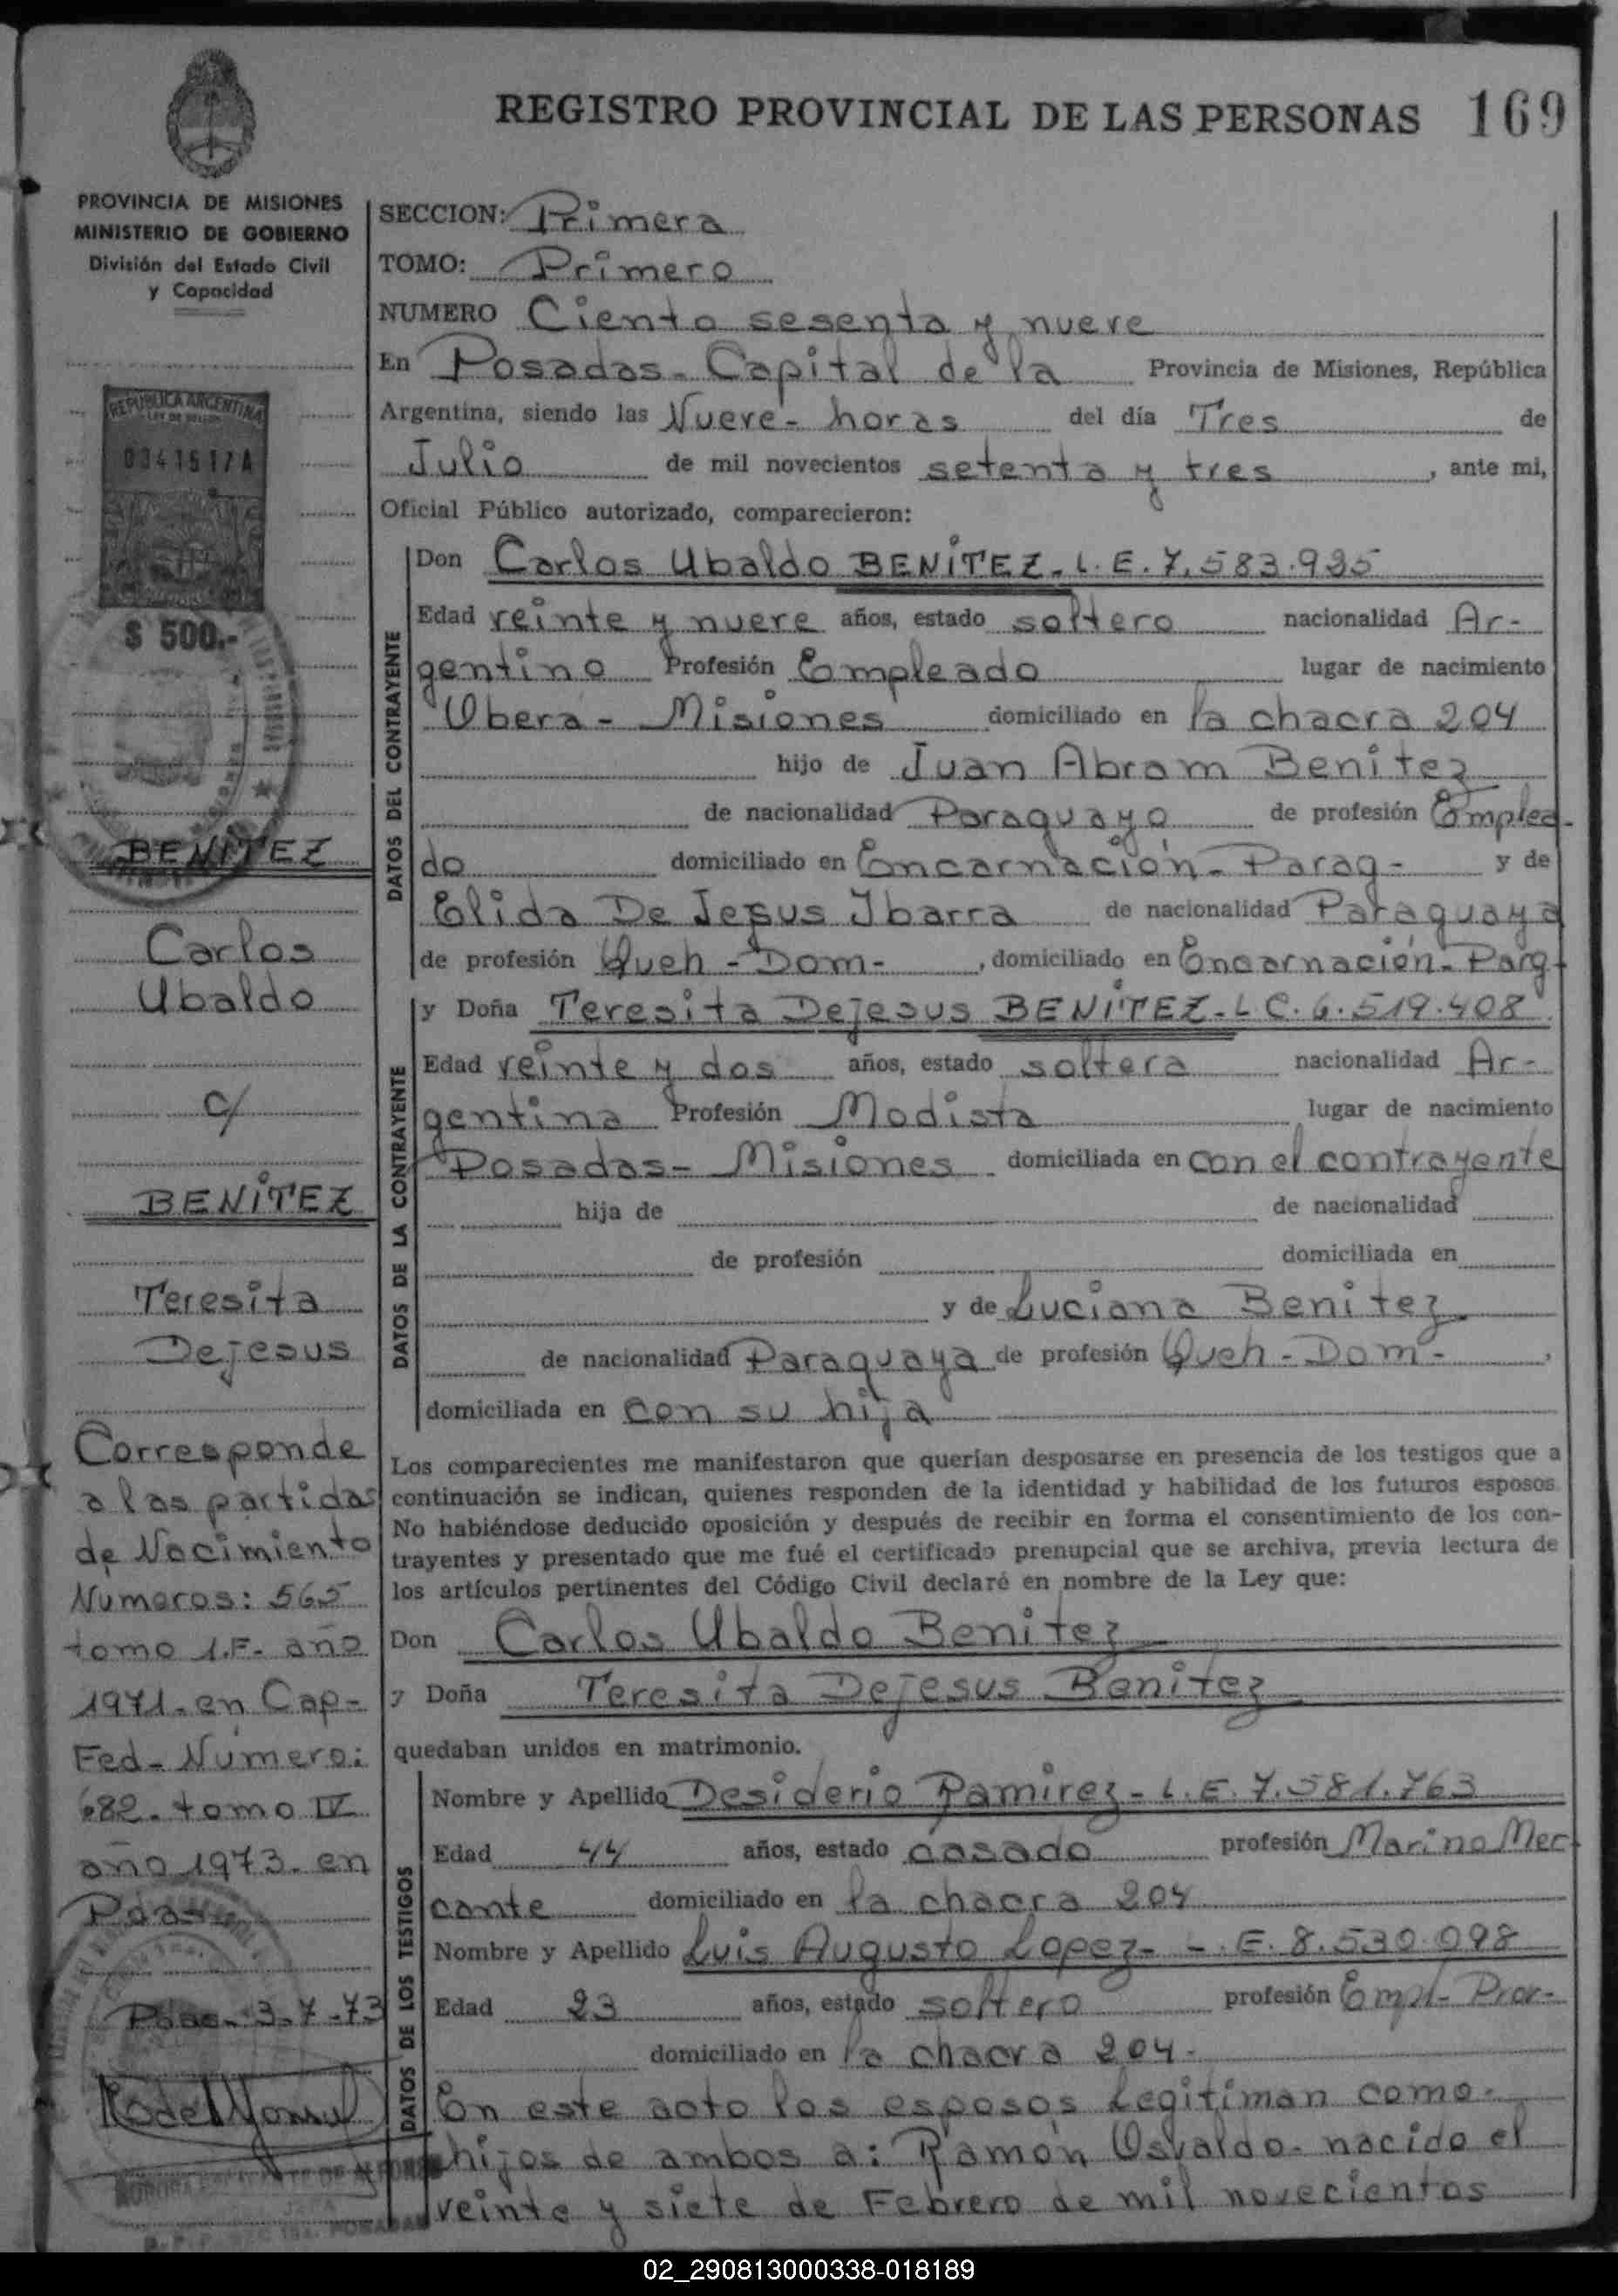 REGISTRO PROVINCIAL DE LAS PERSONAS 169
PROVINCIA DE MISIONES
MINISTERIO DE GOBIERNO
División del Estado Civil
y Capacidad
REPUBLICA ARGENTINA
LEY DE SELLOS
$ 500.-
BENITEZ
Carlos
Ubaldo
c/
BENITEZ
Teresita
Dejesus
Corresponde
a las partidas
de Nacimiento
Numeros: 565
tomo 1.F- año
1971- en Cap-
Fed- Número:
682- tomo IV
año 1973- en
Pdas
Pdas- 3-7-73
SECCION: Primera
TOMO: Primero
NUMERO Ciento sesenta y nueve
En Posadas- Capital de la Provincia de Misiones, República
Argentina, siendo las Nueve- horas del día Tres de
Julio de mil novecientos setenta y tres, ante mi,
Oficial Público autorizado, comparecieron:
DATOS DEL CONTRAYENTE
Don Carlos Ubaldo BENITEZ- L.E. 7.583.935
Edad veinte y nueve años, estado soltero nacionalidad Ar-
gentino Profesión Empleado lugar de nacimiento
Obera- Misiones domiciliado en la chacra 204
hijo de Juan Abram Benitez
de nacionalidad Paraguayo de profesión Emplea-
do domiciliado en Encarnación- Parag- y de
Elida De Jesus Ibarra de nacionalidad Paraguaya
de profesión Queh-Dom-, domiciliado en Encarnación- Parg-
DATOS DE LA CONTRAYENTE
y Doña Teresita Dejesus BENITEZ- L C. 6.519.408
Edad veinte y dos años, estado soltera nacionalidad Ar-
gentina Profesión Modista lugar de nacimiento
Posadas- Misiones domiciliada en con el contrayente
hija de de nacionalidad
de profesión domiciliada en
y de Luciana Benitez
de nacionalidad Paraguaya de profesión Queh-Dom-,
domiciliada en con su hija
Los comparecientes me manifestaron que querían desposarse en presencia de los testigos que a
continuación se indican, quienes responden de la identidad y habilidad de los futuros esposos.
No habiéndose deducido oposición y después de recibir en forma el consentimiento de los con-
trayentes y presentado que me fué el certificado prenupcial que se archiva, previa lectura de
los artículos pertinentes del Código Civil declaré en nombre de la Ley que:
Don Carlos Ubaldo Benitez
y Doña Teresita Dejesus Benitez
quedaban unidos en matrimonio.
DATOS DE LOS TESTIGOS
Nombre y Apellido Desiderio Ramirez- L.E. 7.581.763
Edad 44 años, estado casado profesión Marino Mer-
cante domiciliado en la chacra 204
Nombre y Apellido Luis Augusto Lopez- L.E. 8.530.098
Edad 23 años, estado soltero profesión Empl- Prov-
domiciliado en la chacra 204-
En este acto los esposos Legitiman como-
hijos de ambos a: Ramón Osvaldo- nacido el
veinte y siete de Febrero de mil novecientos
02_290813000338-018189